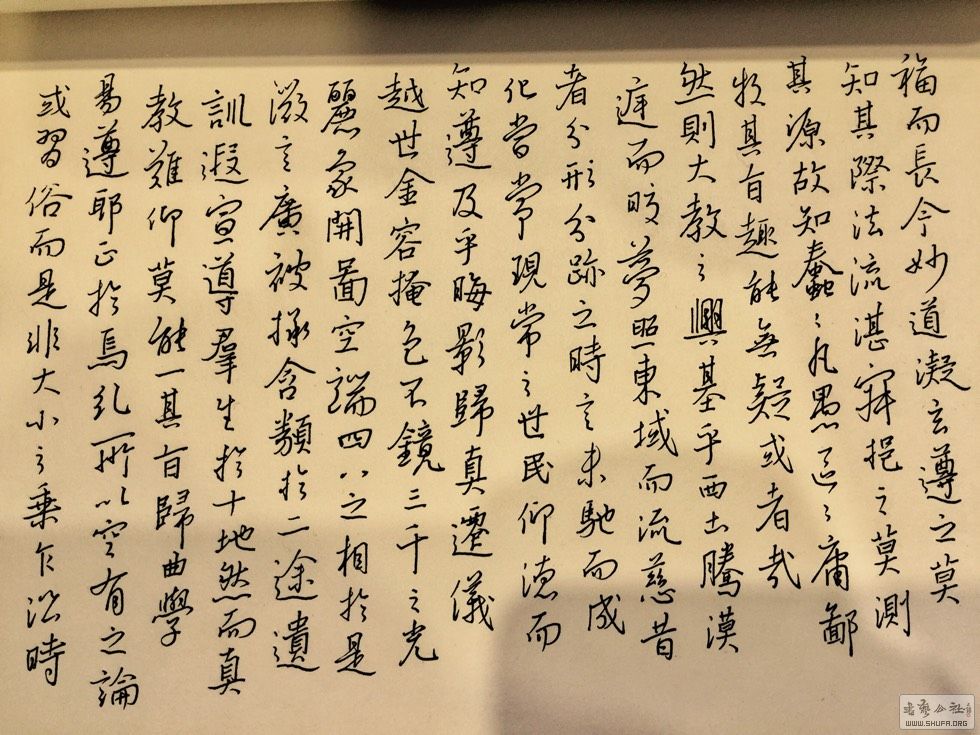 福而長今妙道凝玄遵之莫
知其際法流湛寂挹之莫測
其源故知蠢々凡愚區々庸鄙
投其旨趣能無疑或者哉
然則大教之興基乎西土騰漢
庭而皎夢照東域而流慈昔
者分形分跡之時言未馳而成
化當常現常之世民仰德而
知遵及乎晦影歸真遷儀
越世金容掩色不鏡三千之光
麗象開圖空端四八之相於是
微言廣被拯含類於二途遺
訓遐宣導羣生於十地然而真
教難仰莫能一其旨歸曲學
易遵耶正於焉糺所以空有之論
或習俗而是非大小之乘乍沿時
書藝公社
WWW.SHUFA.ORG